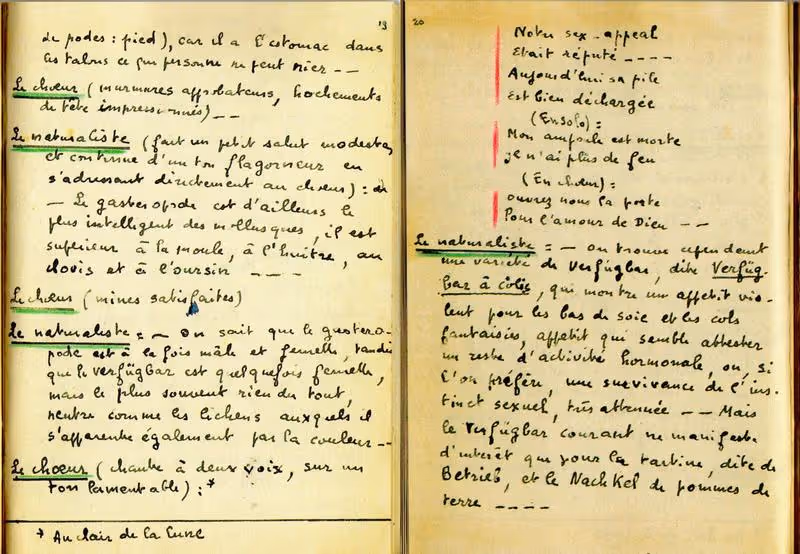 19
de podes : pied), car il a l'estomac dans
les talons ce que personne ne peut nier --
Le chœur (murmures approbateurs, hochements
de tête impressionnés) --
Le naturaliste (fait un petit salut modeste,
et continue d'un ton flagorneur en
s'adressant directement au chœur) :
— Le gasteropode est d'ailleurs le
plus intelligent des mollusques, il est
supérieur à la moule, à l'huitre, au
clovis et à l'oursin ----
Le chœur (mines satisfaites)
Le naturaliste : — On sait que le gastero-
pode est à la fois mâle et femelle, tandis
que le verfügbar est quelquefois femelle,
mais le plus souvent rien du tout,
neutre comme les lichens auxquels il
s'apparente également par la couleur --
Le chœur (chante à deux voix, sur un
ton lamentable) : *
* Au clair de la lune
20
Notre sex-appeal
Etait réputé ----
Aujourd'hui sa pile
Est bien déchargée
(En solo) :
Mon ampoule est morte
je n'ai plus de feu
(En chœur) :
ouvrez nous la porte
Pour l'amour de Dieu --
Le naturaliste = — on trouve cependant
une variété de verfügbar, dite Verfüg-
bar à colis, qui montre un appétit vio-
lent pour les bas de soie et les cols
fantaisies, appétit qui semble attester
un reste d'activité hormonale, ou, si
l'on préfère, une survivance de l'ins-
tinct sexuel, très attenuée -- Mais
le Verfügbar courant ne manifeste
d'interêt que pour la tartine, dite de
Betrieb, et le NachKel de pommes de
terre ----